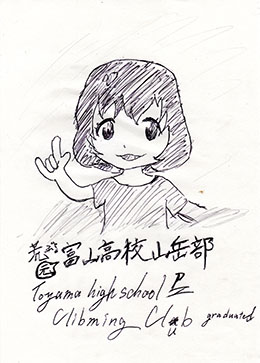 富山高校山岳部
Toyama high school
Clibming Club graduated